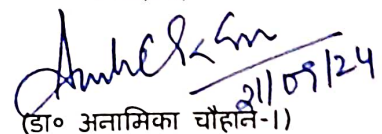 21/09/24
(डा० अनामिका चौहान-1)